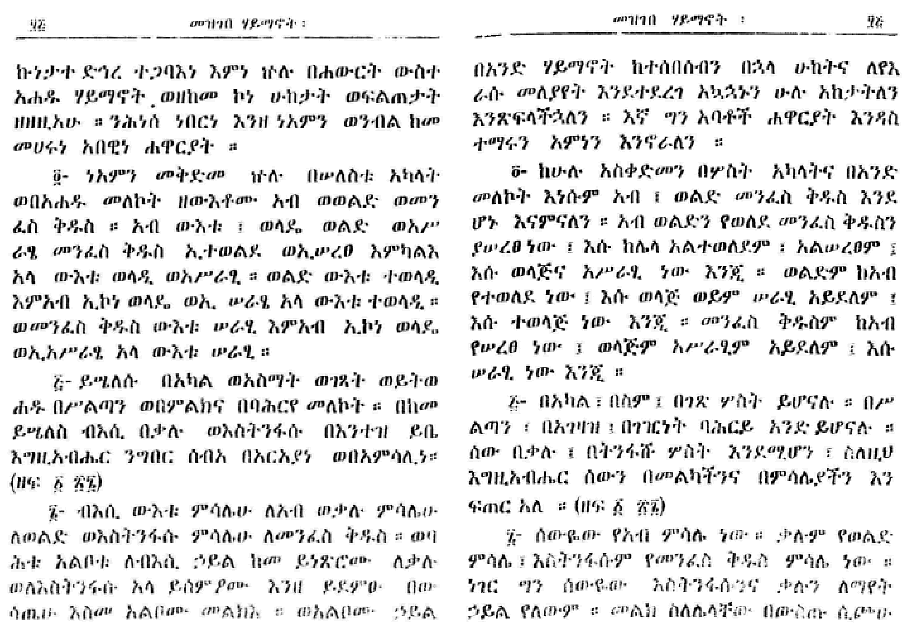 ፶፭ መዝገበ ሃይማኖት ፡
ኩነታተ ድኅረ ተጋባእነ እምነ ኵሉ በሐውርት ውስተ
አሐዱ ሃይማኖት ወዘከመ ኮነ ሁከታት ወፍልጠታት
ዘዘዚአሁ ። ንሕነሰ ነበርነ እንዘ ነአምን ወንብል ከመ
መሀሩነ አበዊነ ሐዋርያት ።
፩- ነአምን መቅድመ ኵሉ በሠለስቱ አካላት
ወበአሐዱ መለኮት ዘውእቶሙ አብ ወወልድ ወመን
ፈስ ቅዱስ ። አብ ውእቱ ፤ ወላዴ ወልድ ወአሥ
ራፄ መንፈስ ቅዱስ ኢተወልደ ወኢሠረፀ እምካልእ
አላ ውእቱ ወላዲ ወአሥራፂ ። ወልድ ውእቱ ተወላዲ
እምአብ ኢኮነ ወላዴ ወኢ ሠራፄ አላ ውእቱ ተወላዲ ።
ወመንፈስ ቅዱስ ውእቱ ሠራፂ እምአብ ኢኮነ ወላዴ
ወኢአሥራፄ አላ ውእቱ ሠራፂ ።
፪- ይሤለሱ በአካል ወአስማት ወገጻት ወይትወ
ሐዱ በሥልጣን ወበምልክና በባሕርየ መለኮት ። በከመ
ይሤለስ ብእሲ በቃሉ ወእስትንፋሱ በእንተዝ ይቤ
እግዚአብሔር ንግበር ሰብአ በአርአያነ ወበአምሳሊነ።
(ዘፍ ፩ ፳፮)
፫- ብእሲ ውእቱ ምሳሌሁ ለአብ ወቃሉ ምሳሌሁ
ለወልድ ወእስትንፋሱ ምሳሌሁ ለመንፈስ ቅዱስ ። ወባ
ሕቱ አልቦቱ ለብእሲ ኃይል ከመ ይነጽሮሙ ለቃሉ
ወለእስትንፋሱ አላ ይሰምዖሙ እንዘ ይደምፁ በው
ስጢሁ እስመ አልቦሙ መልክእ ። ወአልቦሙ ኃይል
መዝገበ ሃይማኖት ፡ ፶፭
በአንድ ሃይማኖት ከተሰበሰብን በኋላ ሁከትና ለየእ
ራሱ መለያየት እንደተደረገ አኳኋኑን ሁሉ አከታትለን
እንጽፍላችኋለን ። እኛ ግን አባቶች ሐዋርያት እንዳስ
ተማሩን አምነን እንኖራለን ።
፩- ከሁሉ አስቀድመን በሦስት አካላትና በአንድ
መለኮት እነሱም አብ ፤ ወልድ መንፈስ ቅዱስ እንደ
ሆኑ እናምናለን ። አብ ወልድን የወለደ መንፈስ ቅዱስን
ያሠረፀ ነው ፤ እሱ ከሌላ አልተወለደም ፤ አልሠረፀም ፤
እሱ ወላጅና አሥራፂ ነው እንጂ ። ወልድም ከአብ
የተወለደ ነው ፤ እሱ ወላጅ ወይም ሠራፂ አይደለም ፤
እሱ ተወላጅ ነው እንጂ ። መንፈስ ቅዱስም ከአብ
የሠረፀ ነው ፤ ወላጅም አሥራፂም አይደለም ፤ እሱ
ሠራፂ ነው እንጂ ።
፪- በአካል ፤ በስም ፤ በገጽ ሦስት ይሆናሉ ። በሥ
ልጣን ፤ በአገዛዝ ፤ በገዢነት ባሕርይ አንድ ይሆናሉ ።
ሰው በቃሉ ፤ በትንፋሹ ሦስት እንደሚሆን ፤ ስለዚህ
እግዚአብሔር ሰውን በመልካችንና በምሳሌያችን እን
ፍጠር አለ ። (ዘፍ ፩ ፳፮)
፫- ሰውዬው የአብ ምሳሌ ነው ። ቃሉም የወልድ
ምሳሌ ፤ እስትንፋሱም የመንፈስ ቅዱስ ምሳሌ ነው ።
ነገር ግን ሰውዬው እስትንፋሱንና ቃሉን ለማየት
ኃይል የለውም ። መልክ ስለሌላቸው በውስጡ ሲጮሁ